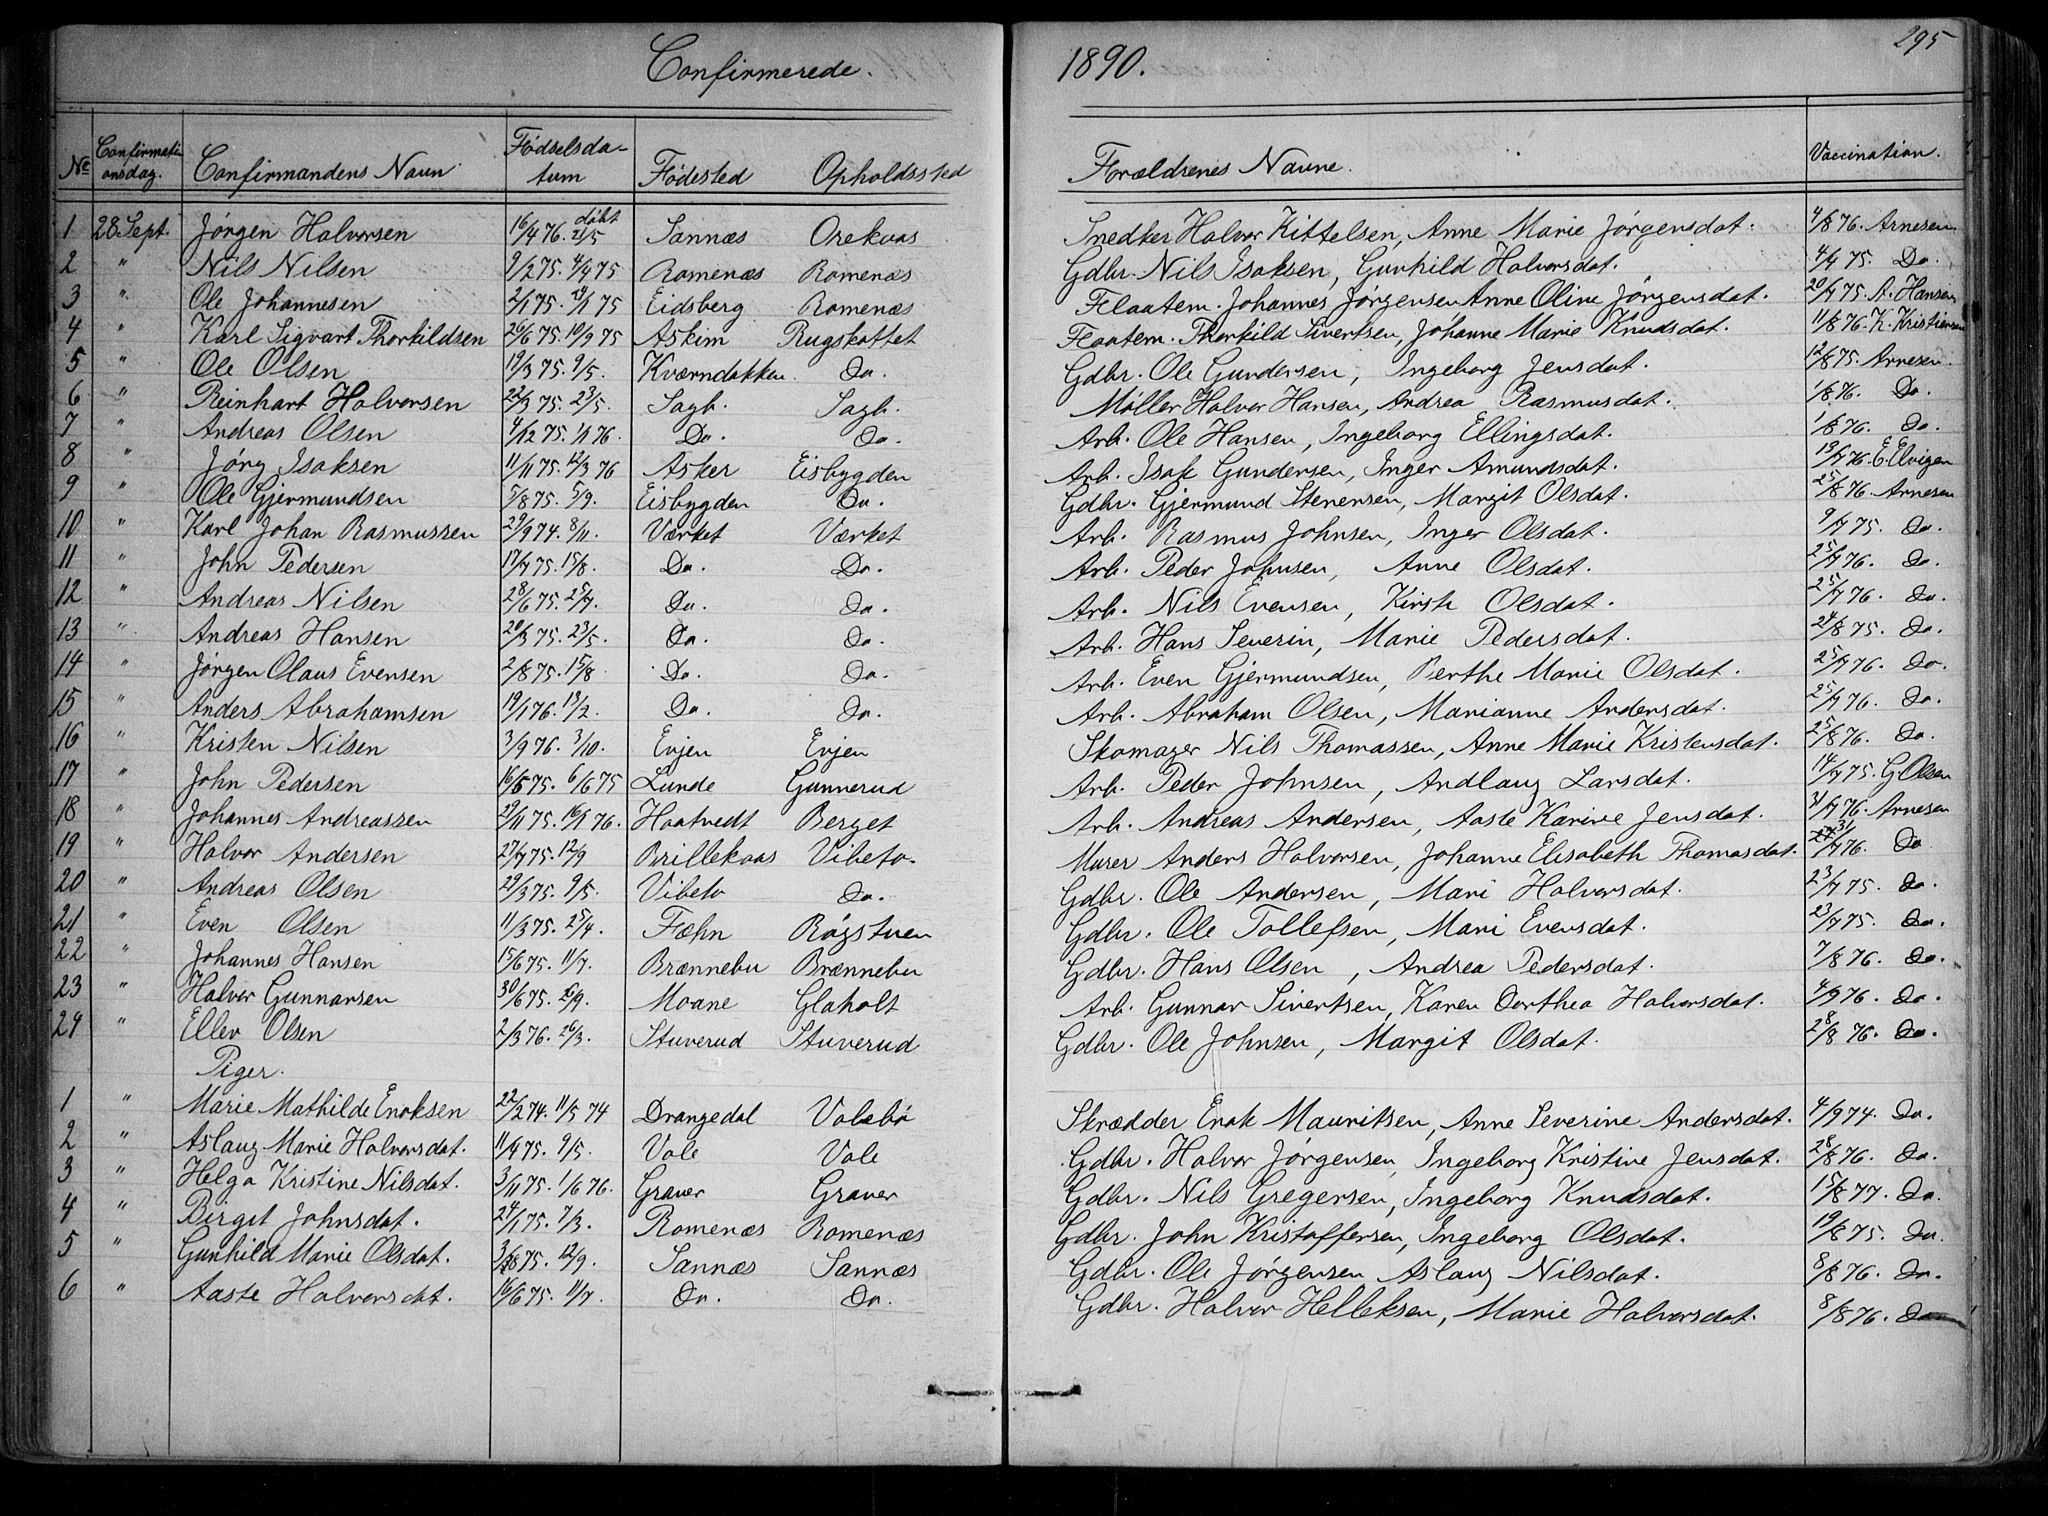 Confirmerede. 1890. 295
No Confirmationsdag. Confirmandens Navn Fødselsdatum Fødested Opholdssted Forældrenes Navne. Vaccination.
1 28 Sept. Jørgen Halversen 16/4 76. døbt 21/5 Sannæs Orekaas Snedker Halvor Kittelsen, Anne Marie Jørgensdat. 4/8 76 Arnesen
2 " Nils Nilsen 9/2 75. 4/4 75 Romenæs Romenæs Gdbr. Nils Isaksen, Gunhild Halversdat. 4/4 75. Do.
3 " Ole Johannesen 2/1 75. 24/1 75 Eidsberg Romenæs Flaatem. Johannes Jørgensen Anne Oline Jørgensdat. 20/7 75. A. Hansen
4 " Karl Sigvart Thorkildsen 26/6 75. 10/9 75 Askim Rugskottet Flaatem. Thorkild Sivertsen, Johanne Marie Knudsdat. 11/8 76. K. Kristiansen
5 " Ole Olsen 19/3 75. 9/5. Kværndokken. Do. Gdbr. Ole Gundersen, Ingeborg Jensdat. 12/8 75. Arnesen
6 " Reinhart Halversen 22/3 75. 23/5. Sagb. Sagb. Møller Halver Hansen, Andrea Rasmusdat. 1/8 76. Do.
7 " Andreas Olsen 4/12 75. 1/1 76. Do. Do. Arb. Ole Hansen, Ingeborg Ellingsdat. 1/8 76. Do.
8 " Jørg Isaksen 11/11 75. 12/3 76 Asker Eisbygden Arb. Isak Gundersen, Inger Amundsdat. 13/7 76. E. Elvigen
9 " Ole Gjermundsen 5/8 75. 5/9. Eisbygden Do. Gdbr. Gjermund Stenersen, Margit Olsdat. 25/8 76. Arnesen
10 " Karl Johan Rasmussen 29/9 74. 8/11. Værket Værket Arb. Rasmus Johnsen, Inger Olsdat. 9/7 75. Do.
11 " John Pedersen 17/7 75. 15/8. Do. Do. Arb. Peder Johnsen, Anne Olsdat. 25/7 76. Do.
12 " Andreas Nilsen 28/6 75. 25/7. Do. Do. Arb. Nils Evensen, Kirsti Olsdat. 25/7 76. Do.
13 " Andreas Hansen 20/3 75. 23/5. Do. Do. Arb. Hans Severin, Marie Pedersdat. 24/8 75. Do.
14 " Jørgen Olaus Evensen 2/8 75. 15/8 Do. Do. Arb. Even Gjermundsen, Berthe Marie Olsdat. 25/7 76. Do.
15 " Anders Abrahamsen 19/1 76. 13/2. Do. Do. Arb. Abraham Olsen, Marianne Andersdat. 25/7 76. Do.
16 " Kristen Nilsen 3/9 76. 3/10. Evjen Evjen Skomager Nils Thomassen, Anne Marie Kristensdat. 25/8 76. Do.
17 " John Pedersen 16/5 75. 6/6 75 Lunde Gunnerud Arb. Peder Johnsen, Andlaug Larsdat. 14/7 75. G. Olsen
18 " Johannes Andreassen 29/11 75. 16/1 76. Haatvedt Berget Arb. Andreas Andersen, Aaste Karine Jensdat. 31/7 76. Arnesen
19 " Halvor Andersen 27/7 75. 12/9 Brillekaas Vibeto. Murer Anders Halvorsen, Johanne Elisabeth Thomasdat. 31/7 76. Do
20 " Andreas Olsen 29/3 75. 9/5. Vibeto Do. Gdbr. Ole Andersen, Mari Halversdat. 23/7 75. Do.
21 " Even Olsen 11/3 75. 25/4. Fæhn Røgstuen Gdbr. Ole Tollefsen, Mari Evensdat. 23/7 75. Do.
22 " Johannes Hansen 15/6 75. 11/7. Brænnebu Brænnebu Gdbr. Hans Olsen, Andrea Pedersdat. 7/8 76. Do.
23 " Halver Gunnarsen 30/6 75. 26/9. Moane Glaholt Arb. Gunnar Sivertsen, Karen Dorthea Halversdat. 4/9 76. Do.
24 " Ellev Olsen 2/3 76. 26/3. Stuverud Stuverud Gdbr. Ole Johnsen, Margit Olsdat. 28/8 76. Do.
Piger.
1 " Marie Mathilde Enoksen 22/2 74. 11/5 74 Drangedal Valebø Skrædder Enok Mauritsen, Anne Severine Andersdat. 4/9 74. Do.
2 " Aslaug Marie Halversdat. 11/4 75. 9/5. Vale Vale Gdbr. Halvor Jørgensen, Ingeborg Kristine Jensdat. 28/8 76. Do.
3 " Helga Kristine Nilsdat. 3/11 75. 1/6 76. Graver Graver Gdbr. Nils Gregersen, Ingeborg Knudsdat. 15/8 77. Do.
4 " Birgit Johnsdat. 24/1 75. 7/3. Romenæs Romenæs Gdbr. John Kristoffersen, Ingeborg Olsdat. 19/8 75. Do.
5 " Gunhild Marie Olsdat. 3/8 75. 12/9. Sannæs Sannæs Gdbr. Ole Jørgensen Aslaug Nilsdat. 8/8 76. Do.
6 " Aaste Halversdat. 16/6 75. 11/7. Do. Do. Gdbr. Halver Helleksen, Marie Halversdat. 8/8 76. Do